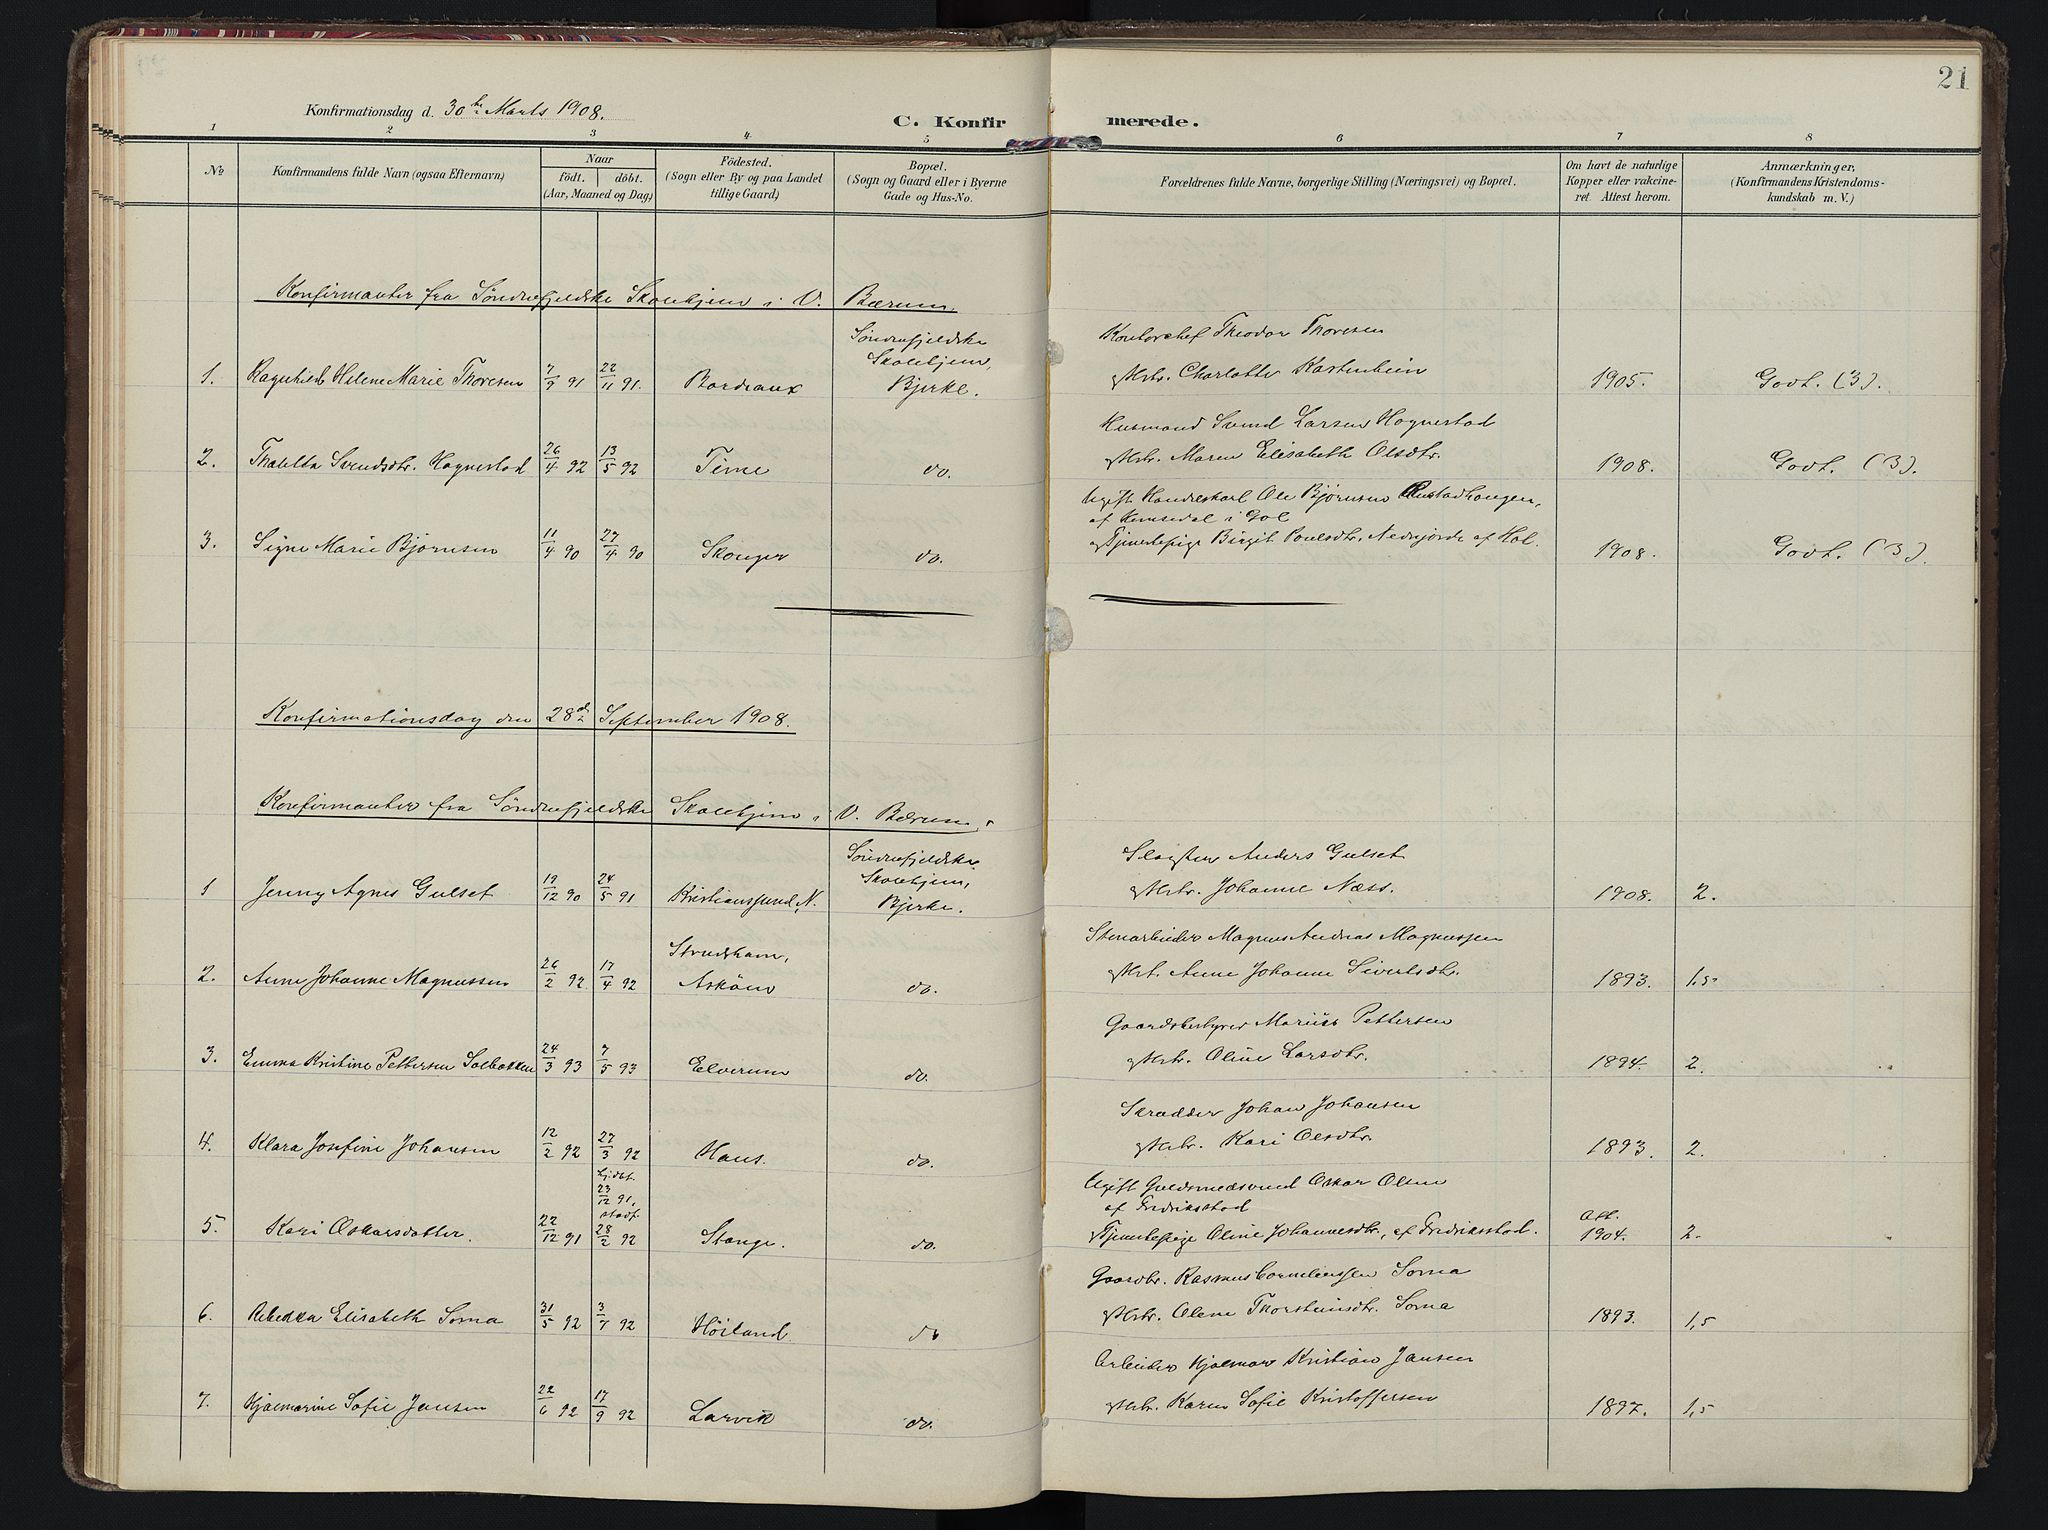 21
Konfirmationsdag d. 30te Marts 1908.
C. Konfirmerede.
1 2 3 4 5 6 7 8
No Konfirmandens fulde Navn (ogsaa Efternavn)
Naar
födt. döbt.
(Aar, Maaned og Dag)
Födested.
(Sogn eller By og paa Landet
tillige Gaard)
Bopæl.
(Sogn og Gaard eller i Byerne
Gade og Hus-No.
Forældrenes fulde Navne, borgerlige Stilling (Næringsvei) og Bopæl.
Om havt de naturlige
Kopper eller vakcine-
ret. Attest herom.
Anmærkninger,
(Konfirmandens Kristendoms-
kundskab m. V.)
Konfirmanter fra Söndenfjeldske Skolehjem i V. Bærum.
1. Ragnhild Helene Marie Thoresen 7/9 91 22/11 91. Bordeaux
Söndenfjeldske
Skolehjem,
Bjerke.
Kontorchef Theodor Thoresen
og Hstr. Charlotte Kastenbein
1905. Godt. (3).
2. Thalitta Svendsdtr. Hognestad 26/4 92 13/5 92 Time do.
Husmand Svend Larsen Hognestad
og Hstr. Maren Elisabeth Olsdtr.
1908. Godt. (3).
3. Signe Marie Bjørnsen 11/4 90 27/4 90 Skonger do.
Ugift Handelskarl Ole Bjørnsen Rustadhaugen,
af Hemsedal i Gol
og Tjenestepige Birgit Poulsdtr. Nedregjorde af Hol.
1908. Godt. (3).
Konfirmationsdag den 28de September 1908.
Konfirmanter fra Söndenfjeldske Skolehjem i V. Bærum.
1 Jenny Agnes Gulset 19/12 90 24/5 91 Kristianssund, N.
Söndenfjeldske
Skolehjem,
Bjerke.
Slagter Anders Gulset
og Hstr. Johanne Næss.
1908. 2.
2. Anne Johanne Magnussen 26/2 92 17/4 92
Strudshavn,
Asköen do.
Stenarbeider Magnus Andreas Magnussen
og Hst. Anne Johanne Sivertsdtr.
1893. 1,5
3. Emma Kristine Pettersen Solbakken 24/3 93 7/5 93 Elverum do.
Gaardsbestyrer Marius Pettersen
og Hstr. Oline Larsdtr.
1894. 2.
4. Klara Josefine Johansen 12/2 92 27/3 92 Haus. do.
Skrædder Johan Johansen
og Hstr. Kari Olsdtr.
1893. 2.
5. Kari Oskarsdatter. 22/12 91 hjdbt. 23/12 91, stadf. 28/2 92 Stange. do.
Ugift Guldsmedsvend Oskar Olsen
af Fredriksstad
Tjenestepige Oline Johannesdtr., af Fredriksstad.
Att.
1904. 2.
6. Rebekka Elisabeth Soma 31/5 92 3/7 92 Höiland. do
Gaardbr. Rasmus Corneliussen Soma
og Hstr. Olene Thorsteinsdtr. Soma
1893. 1,5
7. Hjalmarine Sofie Jansen 22/6 92 17/9 92 Larvik do.
Arbeider Hjalmar Kristian Jansen
og Hstr. Karen Sofie Kristoffersen
1897. 1,5